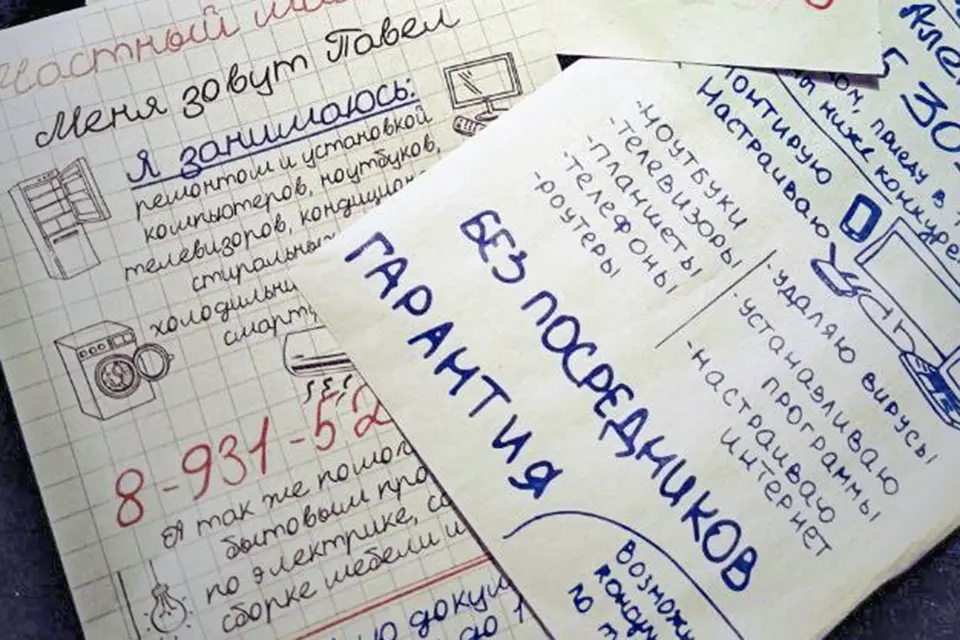 Частный
Меня зовут Павел
Я занимаюсь:
ремонтом и установкой
компьютеров, ноутбуков,
телевизоров, кондицион
стиральных
холодильни
смарт
8-931-52
Я так же помог
бытовым про
по электрике, с
сборке мебели и
докум
до 1
ГАРАНТИЯ
БЕЗ ПОСРЕДНИКОВ
-НОУТБУКИ
-ТЕЛЕВИЗОРЫ
-ПЛАНШЕТЫ
-ТЕЛЕФОНЫ
-РОУТЕРЫ
-УДАЛЯЮ ВИРУСЫ
-УСТАНАВЛИВАЮ
ПРОГРАММЫ
-НАСТРАИВАЮ
ИНТЕРНЕТ
ВОЗМОЖ
Але
5 30
ом, приеду в
ы ниже конкуре
онтирую
Настраиваю